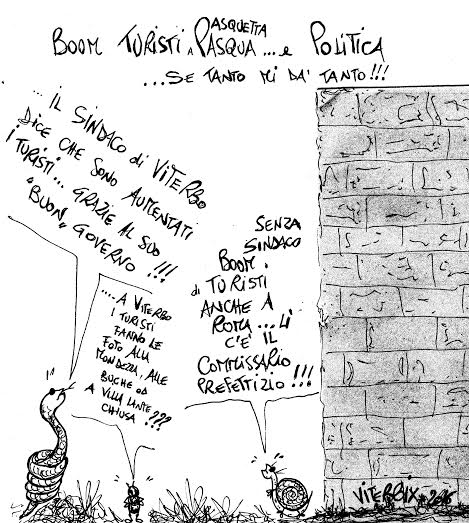 BOOM TURISTI A PASQUA... e POLITICA
PASQUETTA
...SE TANTO MI DA' TANTO!!!
... IL SINDACO di VITERBO
DICE CHE SONO AUMENTATI
I TURISTI... GRAZIE AL SUO
"BUON" GOVERNO!!!
.... A VITERBO
I TURISTI
FANNO LE
FOTO ALLA
MONDEZZA, ALLE
BUCHE OD
A VILLA LANTE
CHIUSA???
SENZA
SINDACO
BOOM
di TURISTI
ANCHE A
ROMA... LÌ
C'È IL
COMMISSARIO
PREFETTIZIO!!!
VITERBIX 2016